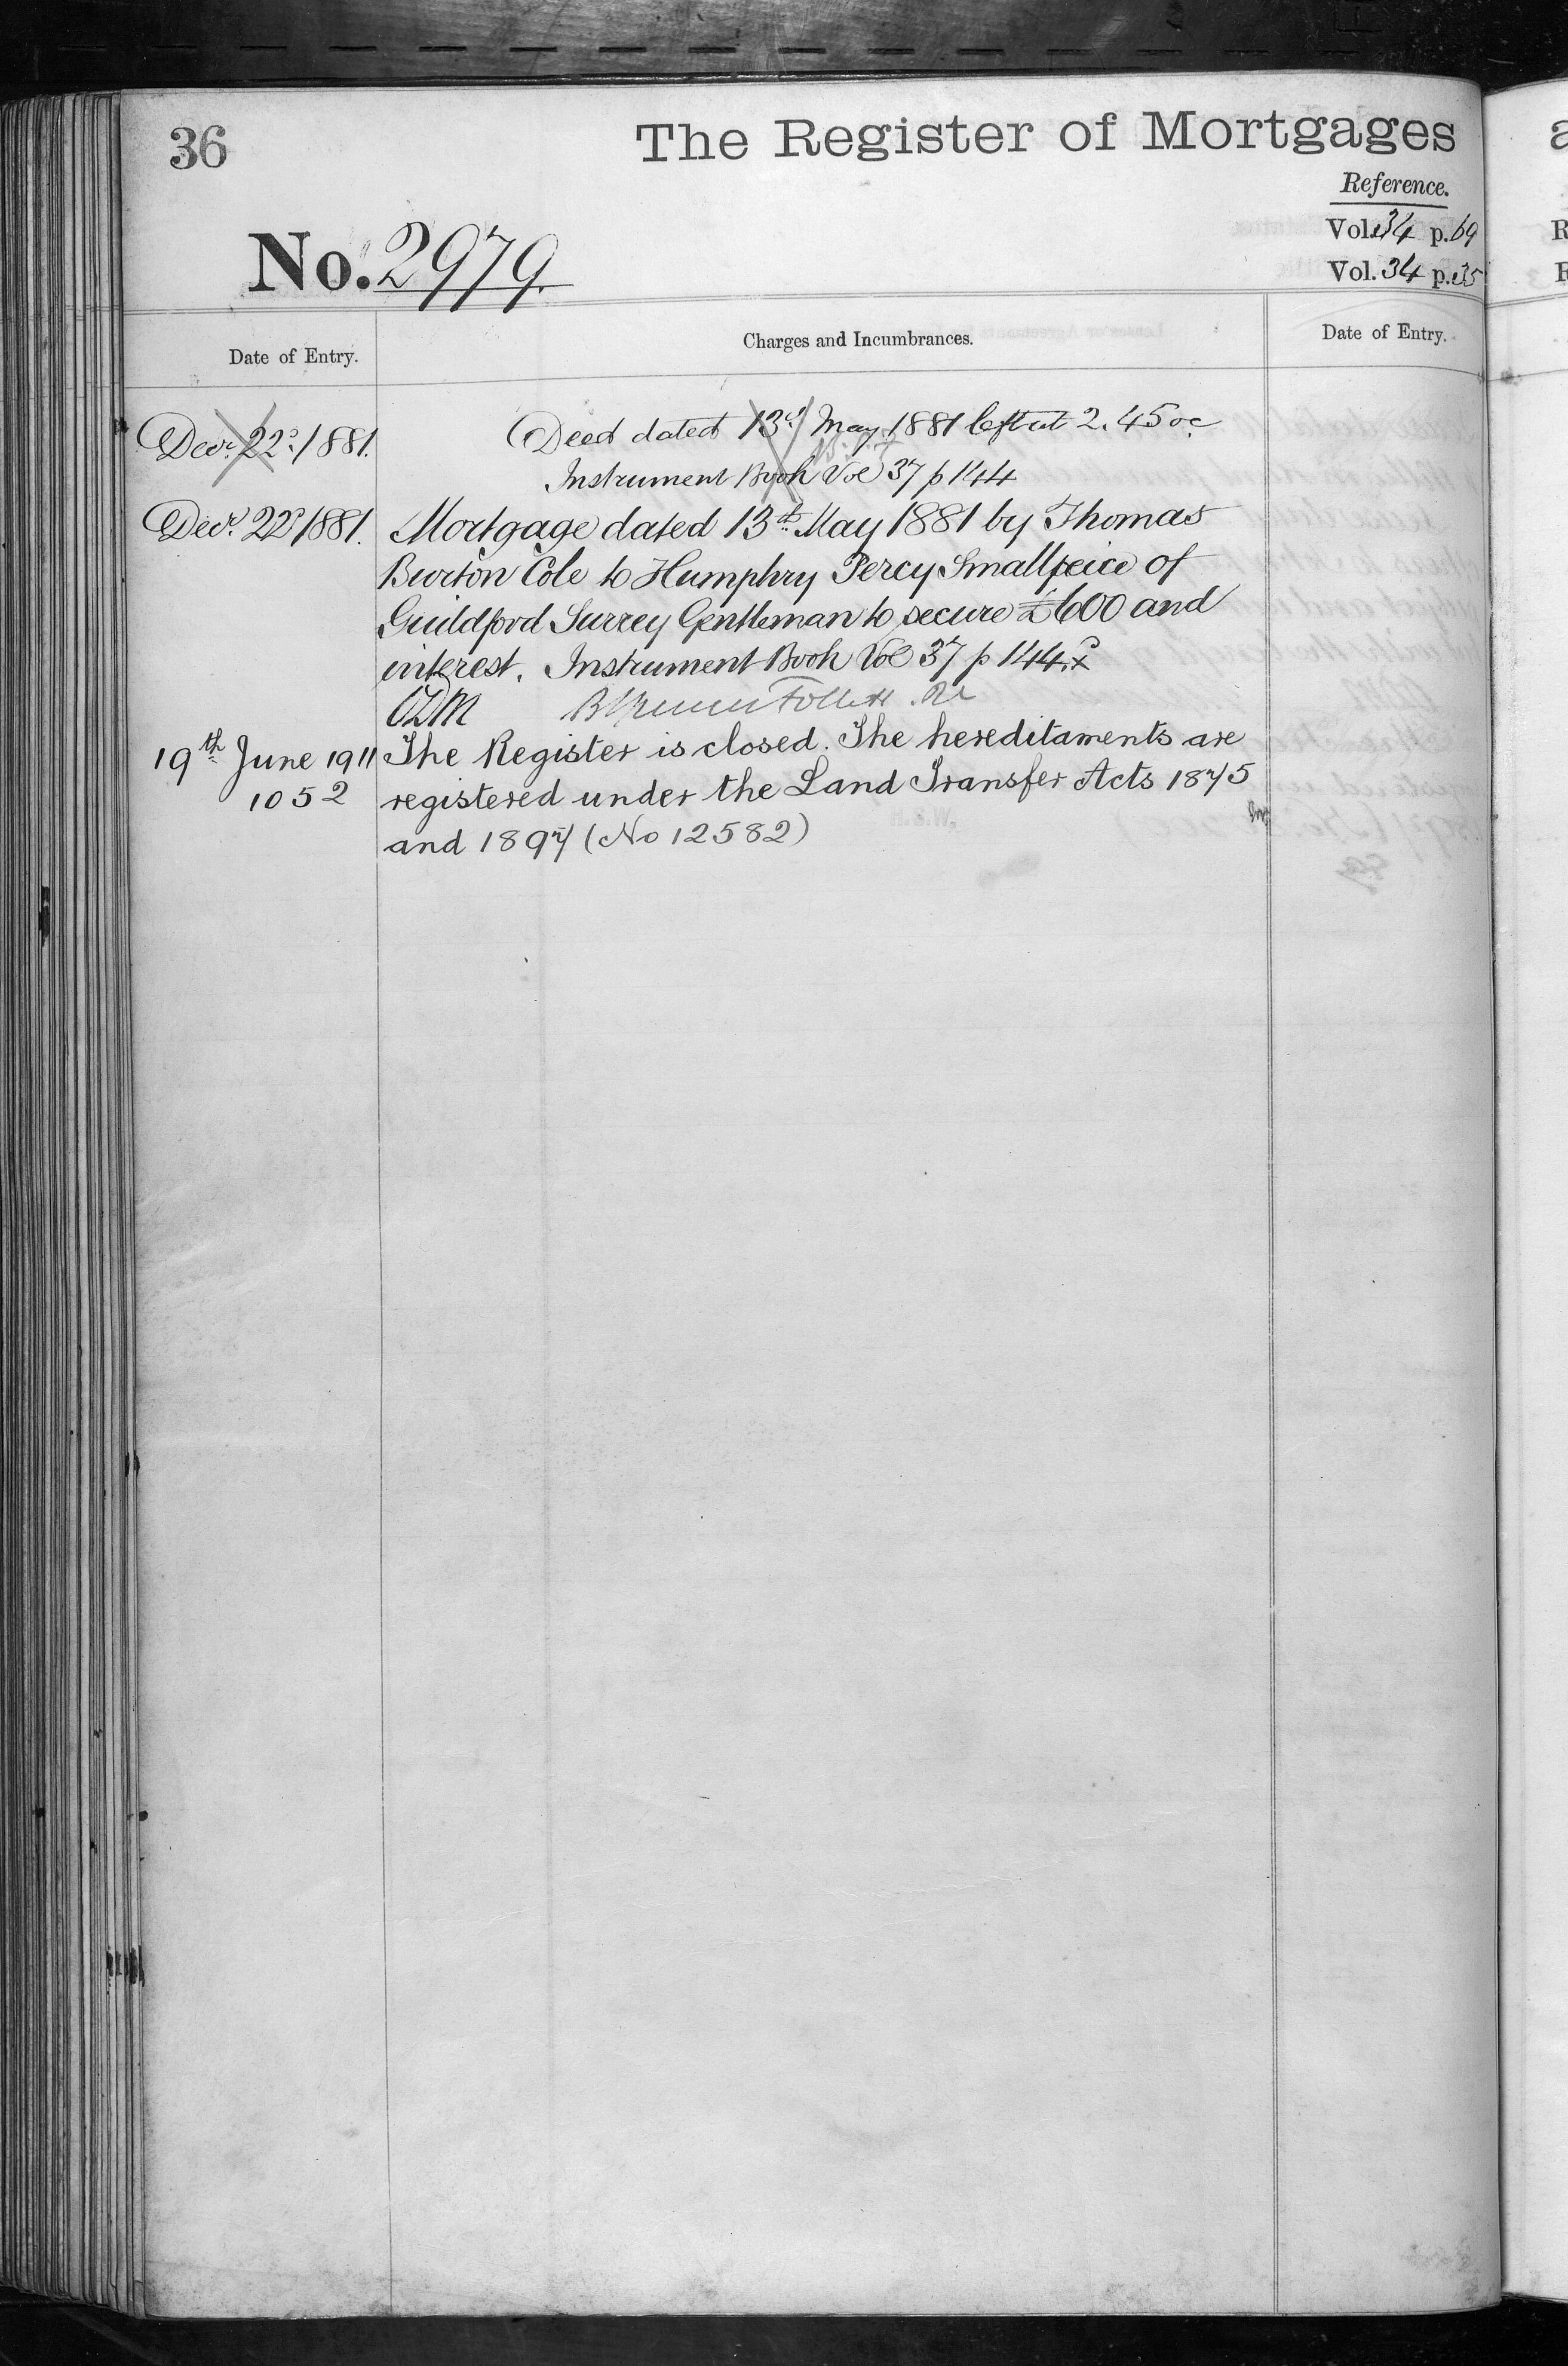 36
The Register of Mortgages
Reference.
Vol. 34 p. 69
Vol. 34 p. 35
No. 2979.
Date of Entry.
Charges and Incumbrances.
Date of Entry.
Decr. 22d. 1881.
Deed dated 13th May 1881 left at 2.45 oc
Instrument Book Vol 37 p 144
Decr. 22d 1881.
Mortgage dated 13th May 1881 by Thomas
Burton Cole to Humphry Percy Smallpeice of
Guildford Surrey Gentleman to secure £600 and
interest. Instrument Book Vol 37 p 144.
Follett
19th June 1911
1052
The Register is closed. The hereditaments are
registered under the Land Transfer Acts 1875
and 1897 (No 12582)